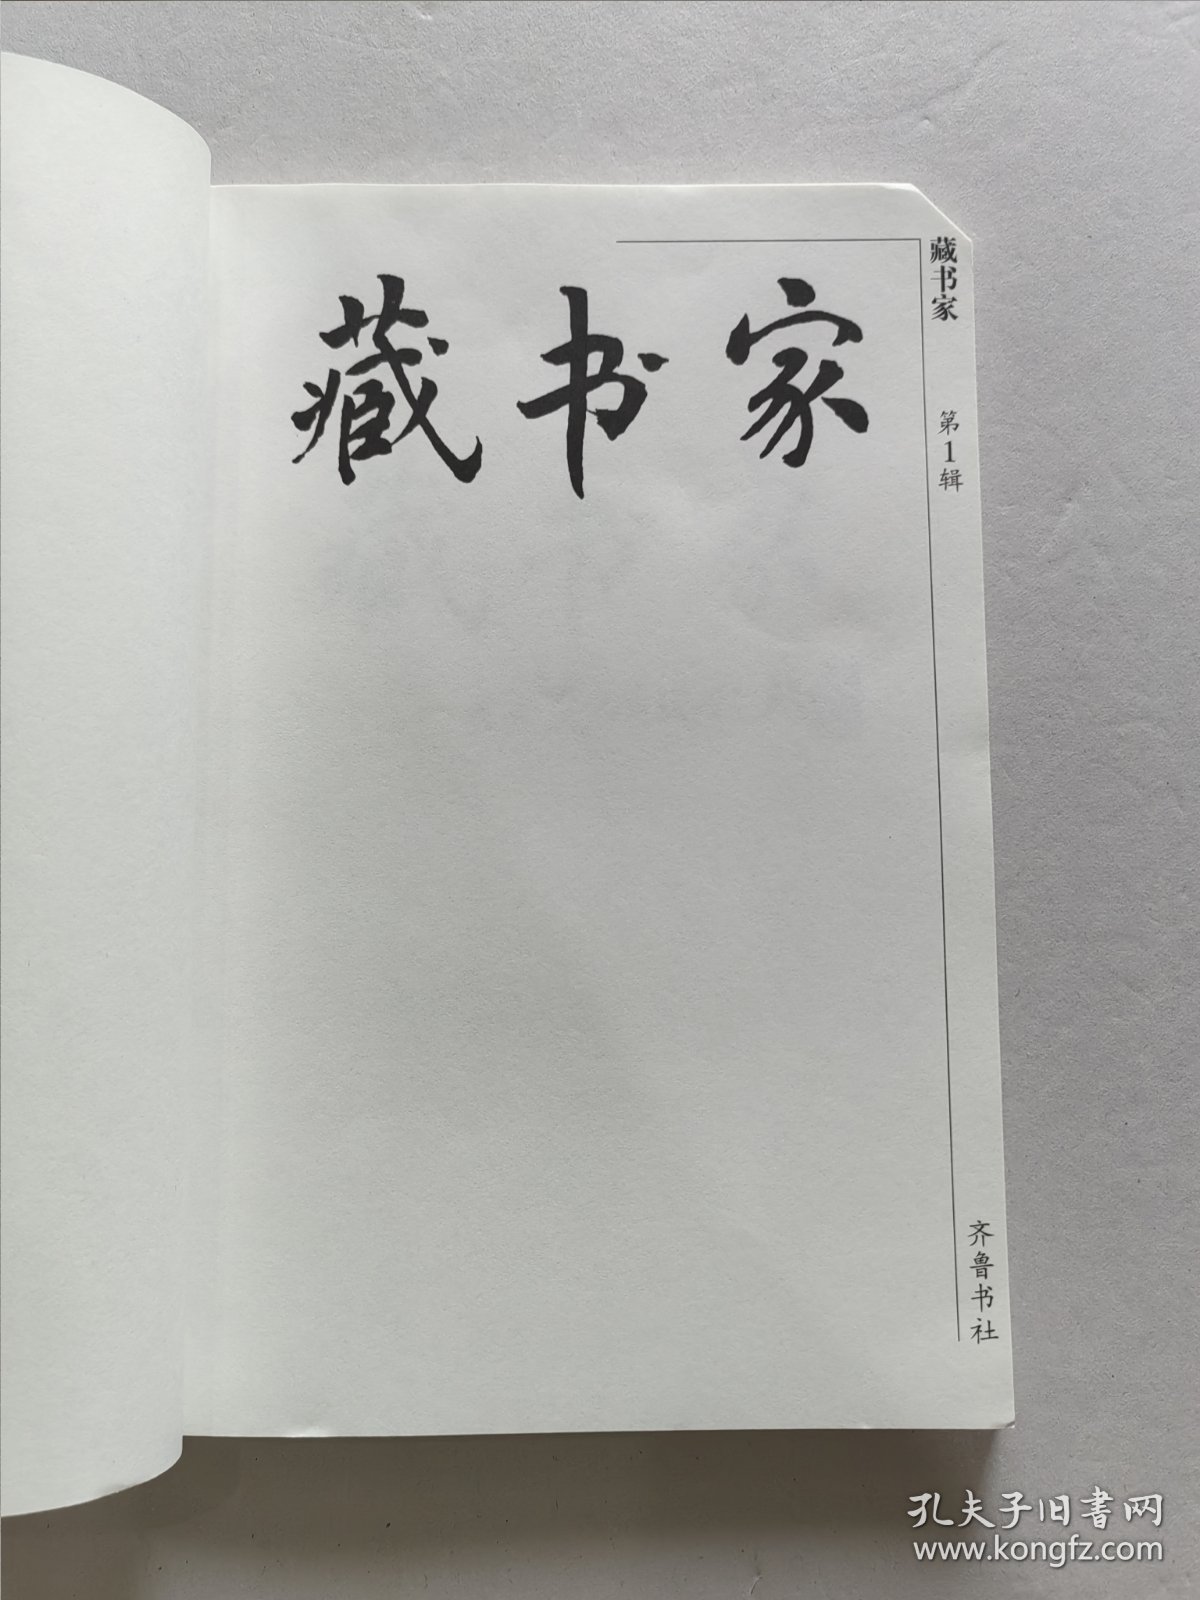 藏书家
藏书家
第1辑
齐鲁书社
孔夫子旧書网
www.kongfz.com